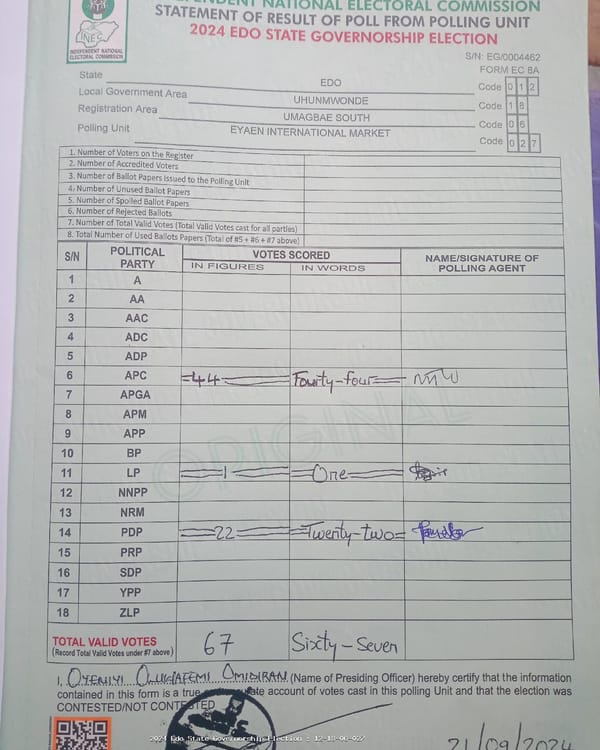 INDEPENDENT NATIONAL ELECTORAL COMMISSION
STATEMENT OF RESULT OF POLL FROM POLLING UNIT
2024 EDO STATE GOVERNORSHIP ELECTION
INEC
INDEPENDENT NATIONAL
ELECTORAL COMMISSION
S/N: EG/0004462
FORM EC 8A
State EDO Code 012
Local Government Area UHUNMWONDE Code 18
Registration Area UMAGBAE SOUTH Code 06
Polling Unit EYAEN INTERNATIONAL MARKET Code 027
1. Number of Voters on the Register
2. Number of Accredited Voters
3. Number of Ballot Papers Issued to the Polling Unit
4. Number of Unused Ballot Papers
5. Number of Spoiled Ballot Papers
6. Number of Rejected Ballots
7. Number of Total Valid Votes (Total Valid Votes cast for all parties)
8. Total Number of Used Ballots Papers (Total of #5 + #6 + #7 above)
S/N POLITICAL PARTY VOTES SCORED NAME/SIGNATURE OF POLLING AGENT
IN FIGURES IN WORDS
1 A
2 AA
3 AAC
4 ADC
5 ADP
6 APC =44= Fourty-four=
7 APGA
8 APM
9 APP
10 BP
11 LP =1= =One=
12 NNPP
13 NRM
14 PDP =22= =Twenty-two=
15 PRP
16 SDP
17 YPP
18 ZLP
ORIGINAL
TOTAL VALID VOTES 67 Sixty-Seven
(Record Total Valid Votes under #7 above)
I, OYENIYI OLUWAFEMI OMIDIRAN (Name of Presiding Officer) hereby certify that the information
contained in this form is a true account of votes cast in this polling Unit and that the election was
CONTESTED/NOT CONTESTED
2024 Edo State Governorship Election : 12-18-06-027
21/09/2024